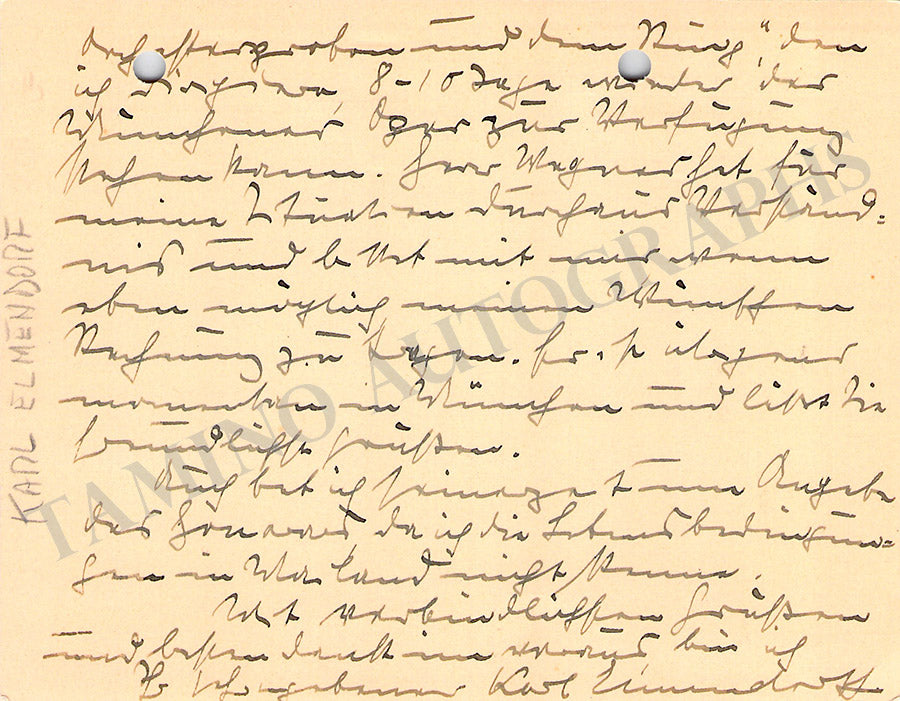 Orchesterproben und dem „Ring", den
ich dirigiere, 8–10 Tage wieder der
Münchener Oper zur Verfügung
stehen kann. Herr Wagner hat für
meine Situation durchaus Verständ-
nis und bittet mit mir wenn
eben möglich meinen Wünschen
Rechnung zu tragen. Er ist übrigens
momentan in München und läßt Sie
freundlichst grüßen.
Auch bat ich seinerzeit um Angabe
des Honorars, da ich die Lebensbedingun-
gen in Mailand nicht kenne.
Mit verbindlichsten Grüßen
und besten Dank im voraus, bin ich
Ihr sehr ergebener Karl Elmendorff
KARL ELMENDORF
TAMINO AUTOGRAPHS